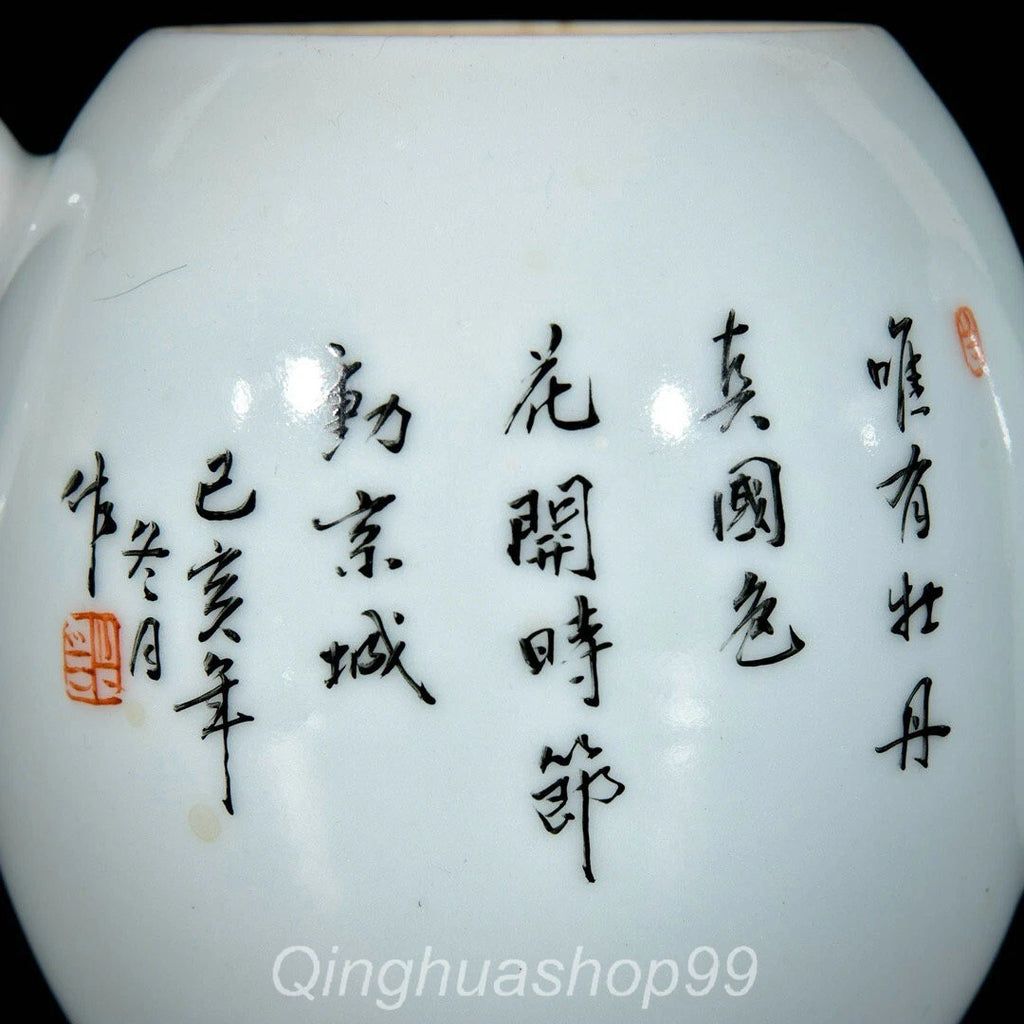 唯有牡丹
真國色
花開時節
動京城
己亥年
冬月
作
Qinghuashop99